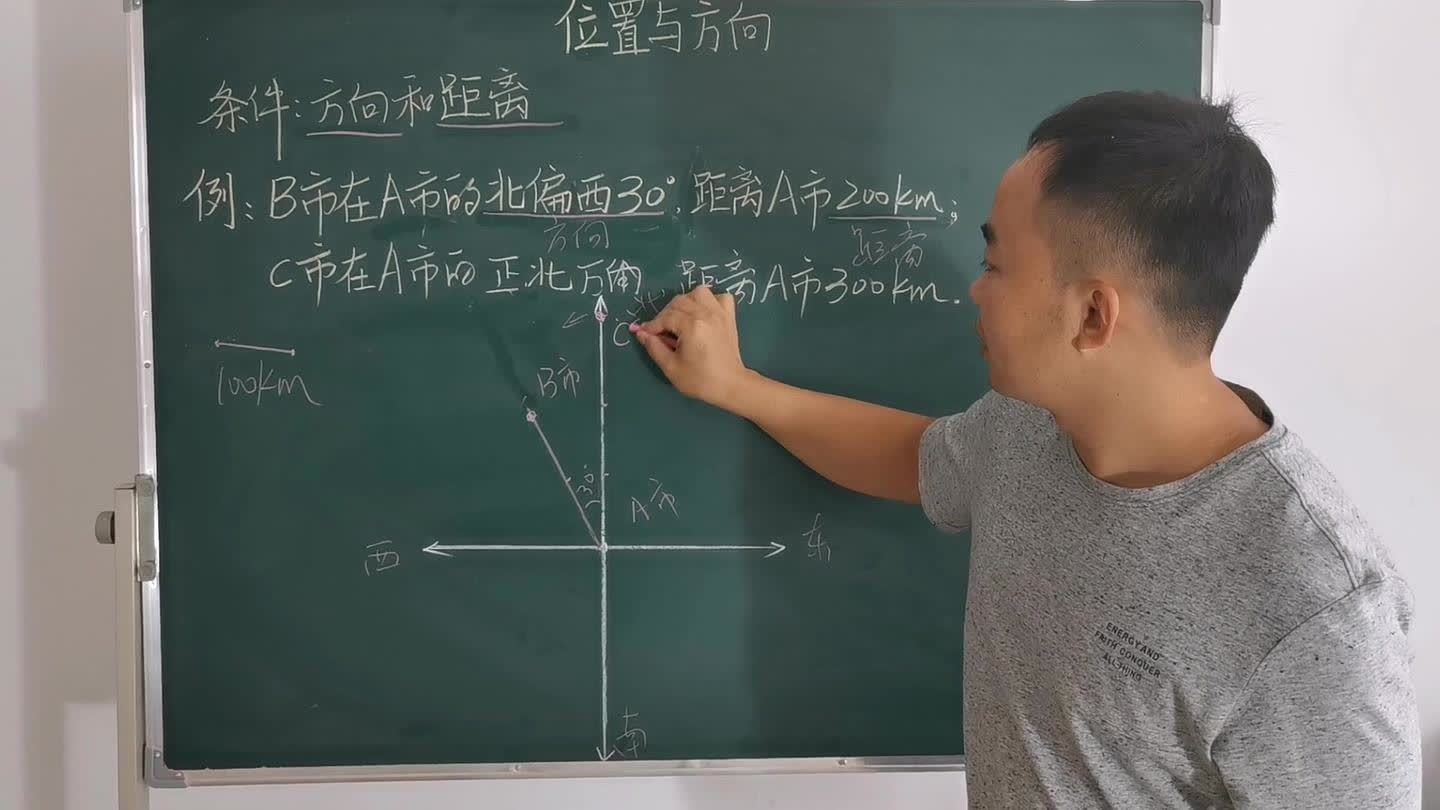 位置与方向
条件:方向和距离
例:B市在A市的北偏西30°,距离A市200km;
方向 距离
C市在A市的正北方向 距离A市300km.
北
C
100km
B市
30°
A市
西
东
南
ENERGY AND
FAITH CONQUER
ALL THING